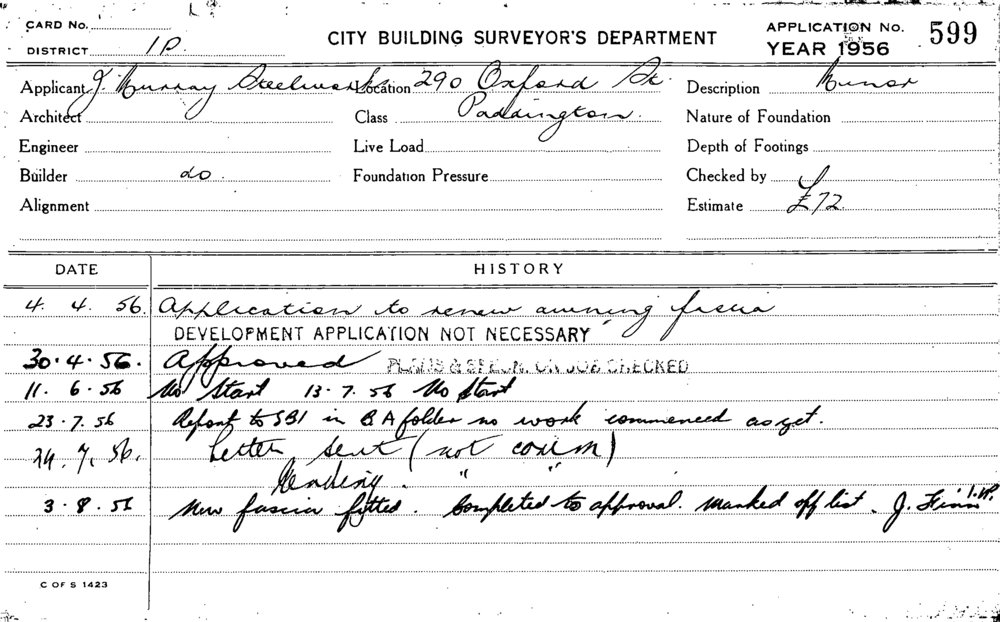 CARD No.
DISTRICT 1P.
CITY BUILDING SURVEYOR'S DEPARTMENT
APPLICATION No. 599
YEAR 1956
Applicant J. Murray Steelworks Location 290 Oxford St. Description Minor
Architect Class Paddington. Nature of Foundation
Engineer Live Load Depth of Footings
Builder do Foundation Pressure Checked by
Alignment Estimate £72.
DATE HISTORY
4. 4. 56. Application to renew awning fascia
DEVELOPMENT APPLICATION NOT NECESSARY
30.4.56. Approved PLANS & SPECN. ON JOB CHECKED
11. 6.56 No Start 13.7.56 No Start
23.7.56 Report to SBI in BA folder no work commenced as yet.
24.7.56. Letter sent (not comm)
Pending. " "
3.8.56 New fascia fitted. Completed to approval. Marked off list. J.
C OF S 1423